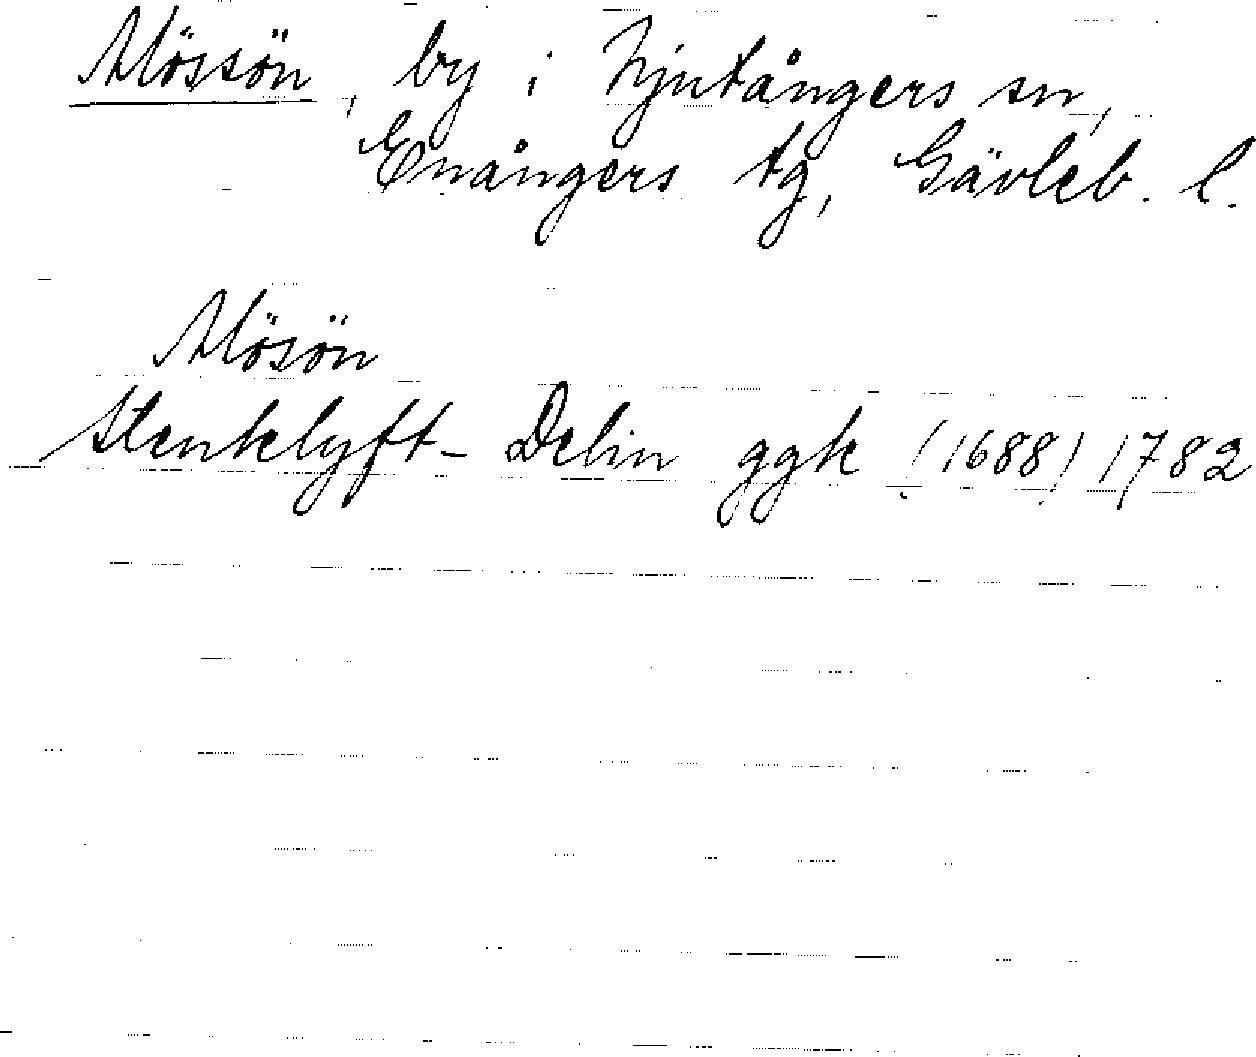 Mössön, by i Njutångers sn,
Enångers tg, Gävleb. l.
Mösön
Stenklyft- Delin ggk (1688) 1782